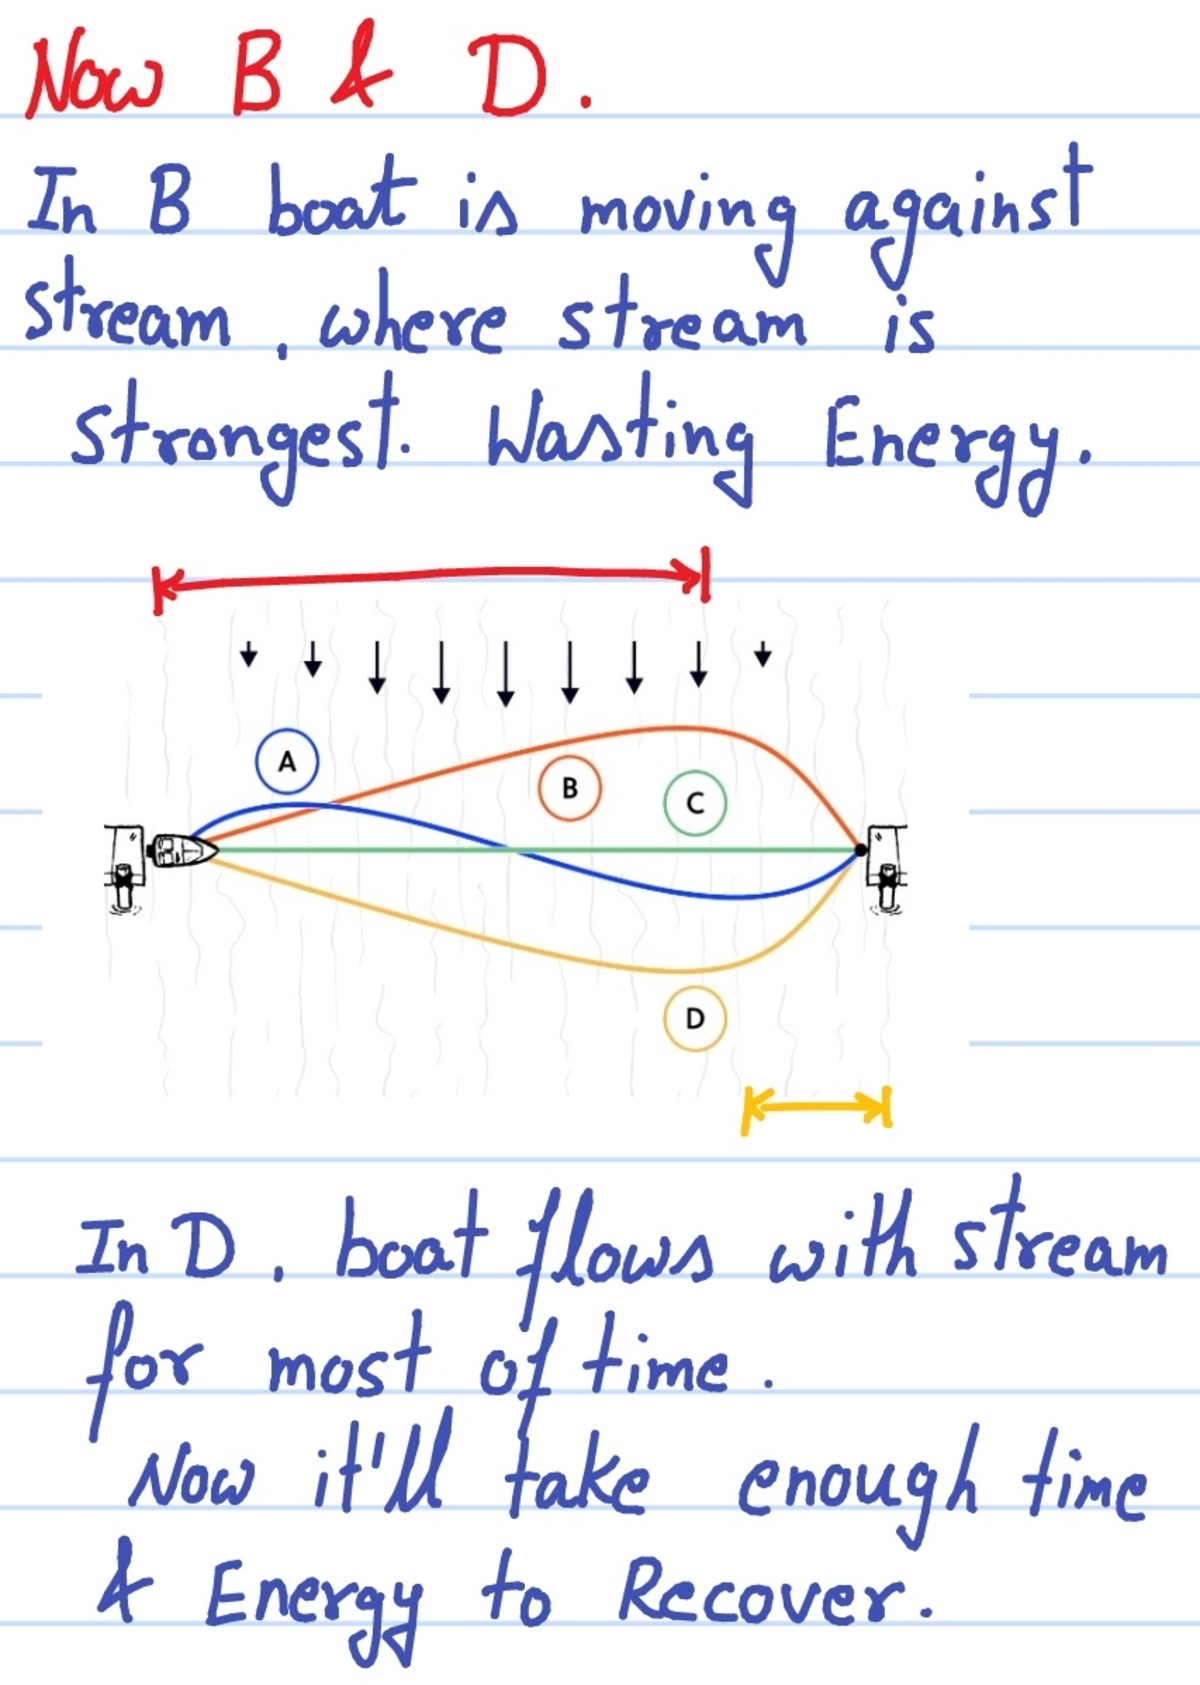 Now B & D.
In B boat is moving against
stream, where stream is
strongest. Wasting Energy.
A
B
C
D
In D, boat flows with stream
for most of time.
Now it'll take enough time
& Energy to Recover.